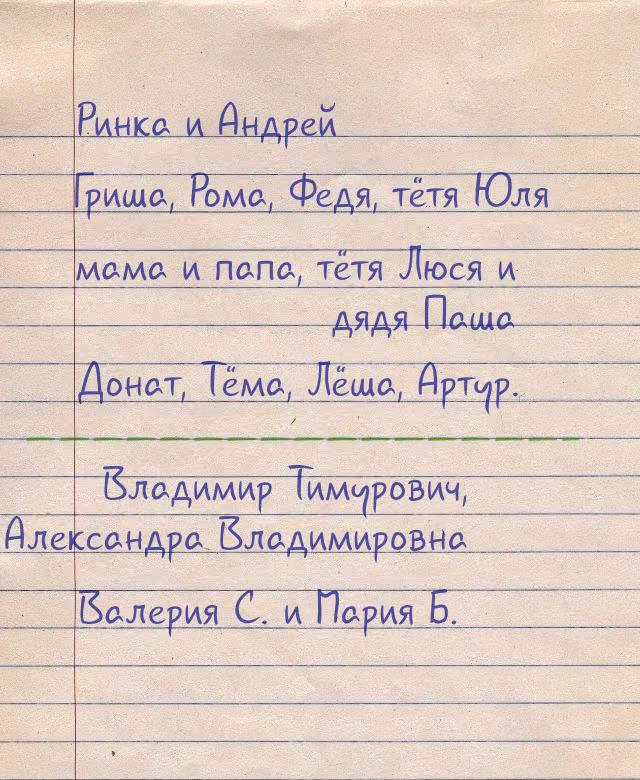 Ринка и Андрей
Гриша, Рома, Федя, тётя Юля
мама и папа, тётя Люся и
дядя Паша
Донат, Тёма, Лёша, Артур.
Владимир Тимурович,
Александра Владимировна
Валерия С. и Мария Б.